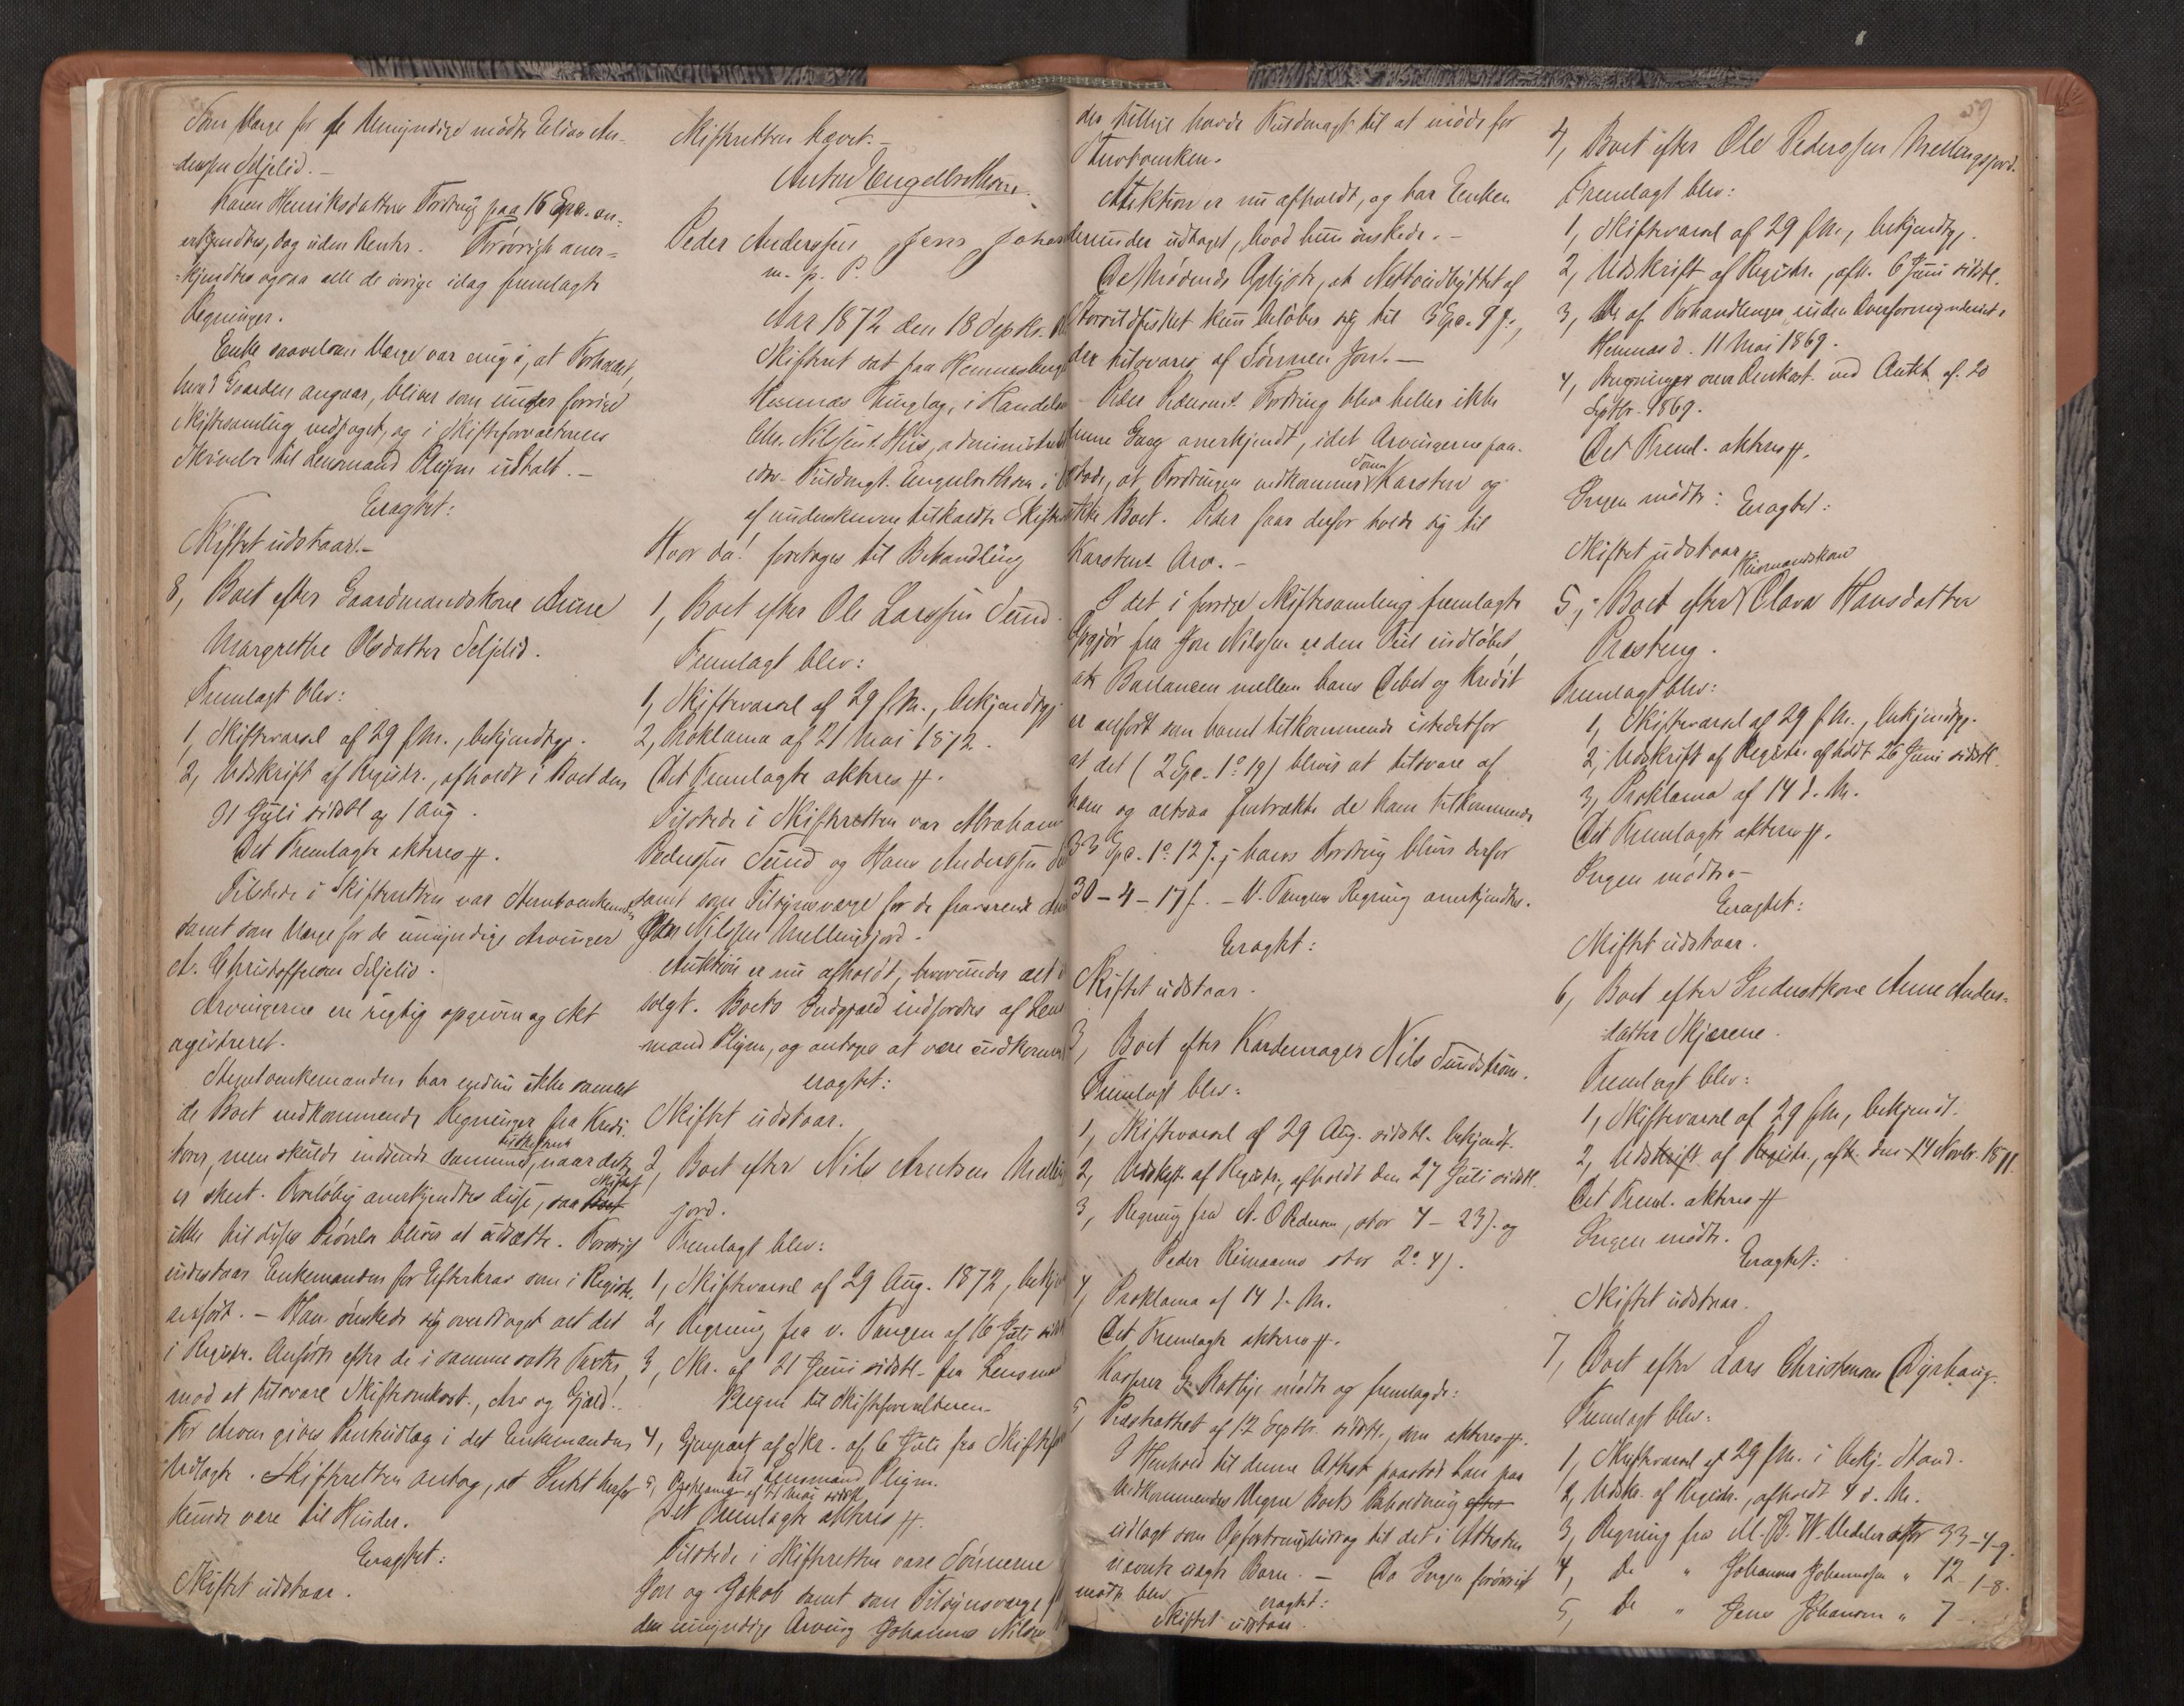 Som Værge for de Umyndige mødte Elias An-
derssen Seljelid. -
Karen Henriksdatters Fordring paa 16 Spd. an-
erkjendtes, dog uden Renter. Forøvrigt aner-
kjendtes ogsaa alle de øvrige idag fremlagte
Regninger.
Enke saavelsom Værge var enig i, at Forholdet,
hvad Gaarden angaar, bliver som under forrige
Skiftesamling vedtaget, og i Skifteforvalterens
Skrivelse til Lensmand Pleym udtalt. -
Eragtet:
Skiftet udstaar. -
8, Boet efter Gaardmandskone Anne
Margrethe Olsdatter Seljelid.
Fremlagt blev:
1, Skiftevarsel af 29 f. M., bekjendtgj.
2, Udskrift af Registr., afholdt i Boet den
31 Juli sidstl. og 1 Aug.
Det Fremlagte akteres #.
Tilstede i Skifteretten var Stervboenkemanden
samt som Værge for de umyndige Arvinger
A. Christoffersen Seljelid.
Arvingerne er rigtig opgiven og Alt
registreret.
Stervboenkemanden har endnu ikke samlet
de Boet vedkommende Regninger fra Kredi-
torer, men skulde indsende samme, naar dette
er skeet. Foreløbig anerkjendtes disse, saa Skiftet
ikke til disses Prøvelse bliver at udsætte. Forøvrigt
indestaar Enkemanden for Efterkrav som i Registr.
anført. - Han ønskede sig overdraget alt det
i Registr. Anførte efter de i samme satte Taxter,
mod at tilsvare Skifteomkost., Arv og Gjæld.
For Arven gives Panteudlæg i det Enkemanden
Udlagte. Skifteretten antog, at Intet herfor
kunde være til Hinder.
Eragtet:
Skiftet udstaar.
Skifteretten hævet. -
Anton Engelbrethsen.
Peder Anderssen Jens Johan
m. p. P.
Aar 1872 den 18 Septbr. bl
Skifteret sat paa Hemnesberget
Hemnæs Thinglag, i Handelsm
Chr. Nilsens Hus, administreret
edsv. Fuldmægt. Engelbrethsen i
af underskrevne tilkaldte Skifte
Hvor da! foretages til Behandling
1, Boet efter Ole Larssen Sund.
Fremlagt blev:
1, Skiftevarsel af 29 f. M., bekjendtgj.
2, Proklama af 21 Mai 1872.
Det Fremlagte akteres #.
Tilstede i Skifteretten var Abraham
Pederssen Sund og Hans Anderssen
samt som Tilsynsværge for de fraværende
Nilssen Mellingsjord.
Auktion er nu afholdt, hvorunder alt
solgt. Boets Indgjæld indfordres af Lens
mand Pleym, og antages at være indkommen
eragtet:
Skiftet udstaar.
2, Boet efter Nils Arntsen Mellings
jord.
Fremlagt blev:
1, Skiftevarsel af 29 Aug. 1872, bekjendt
2, Regning fra v. Tangen af 16 Juli sidstl
3, Skr. af 21 Juni sidstl. fra Lensmand
Pleym til Skifteforvalteren
4, Gjenpart af Skr. af 6 Juli fra Skiftefor
til Lensmand Pleym.
5, Proklama af 21 Mai sidstl.
Det Fremlagte akteres #.
Tilstede i Skifteretten vare Sønnerne
Jon og Jakob samt som Tilsynsværge for
den umyndige Arving Johannes Nilsen
der tillige havde Fuldmagt til at møde for
Stervboenken.
Auktion er nu afholdt, og har Enken
derunder udtaget, hvad hun ønskede. -
De Mødende Oplyste, at Nettoudbyttet af
Storsildfisket kun beløber sig til 3 Spd. 9 s.,
der tilsvares af Sønnen Jon. -
Peder Pedersens Fordring blev heller ikke
denne Gang anerkjendt, idet Arvingerne paa-
stode, at Fordringen vedkommer Sønnen Karsten og
ikke Boet. Peder faar derfor holde sig til
Karstens Arv. -
I det i forrige Skiftesamling fremlagte
Opgjør fra Jon Nilssen er den Feil indløbet,
at Ballancen mellem hans Debet og Kredit
er anført som ham tilkommende istedetfor
at det (2 Spd. 1 o 19) bliver at tilsvare af
ham og altsaa fratrække de ham tilkommende
33 Spd. 1 o 12 s.; hans Fordring bliver derfor
30 - 4 - 17 s. - V. Tangens Regning anerkjendtes.
Eragtet:
Skiftet udstaar.
3, Boet efter Kardemager Nils Sundstrøm.
Fremlagt blev:
1, Skiftevarsel af 29 Aug. sidstl. bekjendt.
2, Udskrift af Registr., afholdt den 27 Juli sidstl.
3, Regning fra A. O. Pedersen, stor 4 - 23 s. og
Peder stor 2 o 4 s.
4, Proklama af 14 d. M.
Det Fremlagte akteres #.
Kasserer G. Ratlije mødte og fremlagde:
5, Præsteattest af 12 Septbr. sidstl., som akteres #.
I Henhold til denne Attest paastod han paa
Vedkommendes Vegne Boets Beholdning
udlagt som Opfostringsbidrag til det i Attesten
nævnte uægte Barn. - Da Ingen forøvrigt
mødte blev
eragtet:
Skiftet udstaar.
59
4, Boet efter Ole Pederssen Mellingsjord.
Fremlagt blev:
1, Skiftevarsel af 29 f. M., bekjendtgj.
2, Udskrift af Registr., afh. 6 Juni sidstl.
3, Do af Forhandlinger inden Overformynderiet i
Hemnæs d. 11 Mai 1869.
4, Beregninger over Omkost. ved Aukt. af 20
Septbr. 1869.
Det Freml. akteres #.
Ingen mødte: Eragtet:
Skiftet udstaar.
5, Boet efter Huusmandskone Olava Hansdatter
Præsteng.
Fremlagt blev:
1, Skiftevarsel af 29 f. M., bekjendtgj.
2, Udskrift af Registr. afholdt 26 Juni sidstl.
3, Proklama af 14 d. M.
Det Fremlagte akteres #.
Ingen mødte. -
Eragtet:
Skiftet udstaar.
6, Boet efter Inderstkone Anne Anders-
datter Skjærene.
Fremlagt blev:
1, Skiftevarsel af 29 f. M., bekjendt.
2, Udskrift af Registr., afh. den 14 Novbr. 1871.
Det Freml. akteres #
Ingen mødte.
Eragtet:
Skiftet udstaar.
7, Boet efter Lars Christensen Dyrhaug.
Fremlagt blev:
1, Skiftevarsel af 29 f. M. i bekj. Stand.
2, Udskr. af Registr., afholdt 4 d. M.
3, Regning fra M. B. W. Meder stor 33 - 4 - 9.
4, Do " Johannes Johannessen " 12 - 1 - 8.
5, Do " Jens Johansen " 7 - .